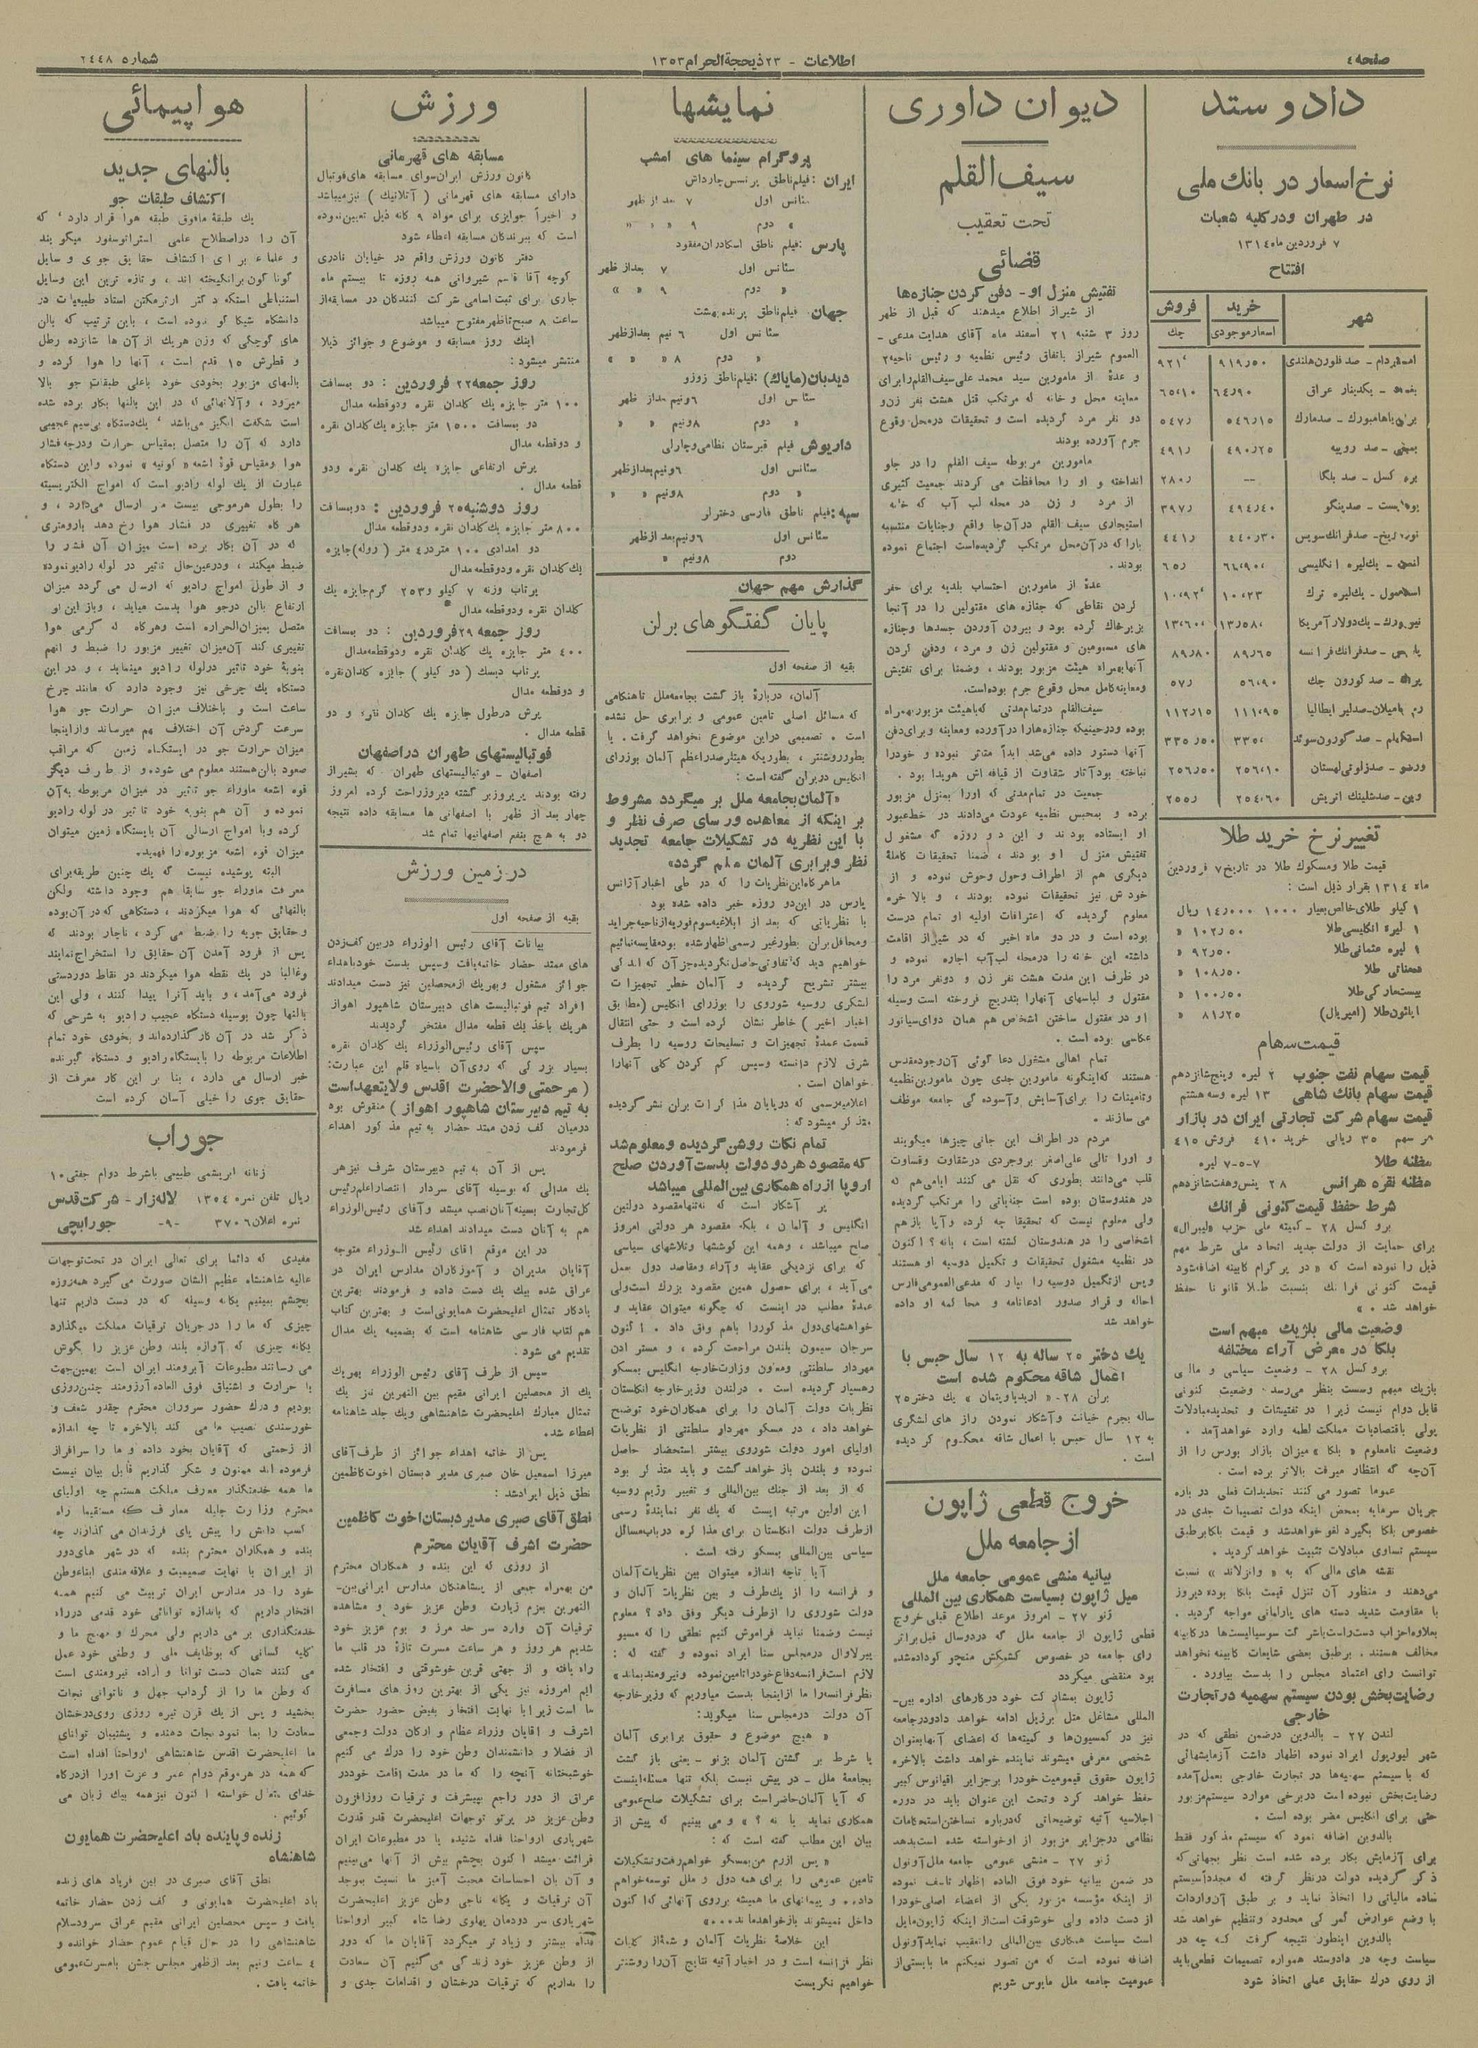 صفحه ٤
اطلاعات - ٢٣ ذیحجة الحرام ١٣٥٣
شماره ٢٤٤٨
داد و ستد
نرخ اسعار در بانك ملی
در طهران ودر کلیه شعبات
٧ فروردین ماه ١٣١٤
افتتاح
شهر خرید فروش
اسعار موجودی چك
آمستردام - صد فلورن هلندی ٩١٩٫٥٠
بغداد - یکدینار عراق ٦٤٫٩٠ ٦٥٫١٠
٥٤٦٫١٥ ٥٤٧٫
بمبئی - صد روپیه ٤٩٠٫٢٥ ٤٩١٫
بروکسل - صد بلگا -- ٢٨٠٫
بوداپست - صد پنگو ٤٩٤٫٤٠ ٣٩٧٫
صد فرانك سویس ٤٤٠٫٣٠ ٤٤١٫
یك لیره انگلیسی
اسلامبول - یك لیره ترك ١٠٫٢٣
نیویورك - یك دولار آمریکا
پاریس - صد فرانك فرانسه ٨٩٫٦٥ ٨٩٫٨٠
پراك - صد کورون چك ٥٦٫٩٠ ٥٧٫
رم یا میلان - صد لیر ایطالیا ١١١٫٩٥ ١١٢٫١٥
استکهلم - صد کورون سوئد ٣٣٥٫٥٠
ورشو - صد زلوتی لهستان ٢٥٦٫١٠ ٢٥٦٫٥٠
وین - صد شلینك اتریش ٢٥٤٫٦٠ ٢٥٥٫
تغییر نرخ خرید طلا
قیمت طلا ومسکوك طلا در تاریخ ٧ فروردین
ماه ١٣١٤ بقرار ذیل است :
١ کیلو طلای خالص بعیار ١٠٠٠ ١٤٫٠٠٠ ریال
١ لیره انگلیسی طلا ١٠٢٫٥٠ »
١ لیره عثمانی طلا ٩٢٫٥٠ »
١٠٨٫٥٠ »
بیست مارکی طلا ١٠٠٫٥٠ »
ناپلئون طلا (امپریال) ٨١٫٢٥ »
قیمت سهام
قیمت سهام نفت جنوب ٢ لیره وپنج شانزدهم
قیمت سهام بانك شاهی ١٣ لیره وسه هشتم
قیمت سهام شرکت تجارتی ایران در بازار
هر سهم ٣٥ ریالی خرید ٤١٠ فروش ٤١٥
مظنه طلا ٧-٥-٧ لیره
مظنه نقره هر انس ٢٨ پنس وهفت شانزدهم
شرط حفظ قیمت کنونی فرانك
بروکسل ٢٨ - کمیته ملی حزب «لیبرال»
برای حمایت از دولت جدید اتحاد ملی شرط مهم
ذیل را نموده است که « در پرگرام کابینه اضافه شود
قیمت کنونی فرانك بنسبت طلا قانونا حفظ
خواهد شد . »
وضعیت مالی بلژیك مبهم است
بلگا در معرض آراء مختلفه
بروکسل ٢٨ - وضعیت سیاسی و مالی
بلژیك مبهم وسست بنظر می رسد . وضعیت کنونی
قابل دوام نیست زیرا در تفتیشات و تحدید مبادلات
پولی باقتصادیات مملکت لطمه وارد خواهد آمد .
وضعیت نامعلوم « بلگا » میزان بازار بورس را از
آن چه که انتظار میرفت بالاتر برده است .
عموما تصور می کنند تحدیدات فعلی در باره
جریان سرمایه بمحض اینکه دولت تصمیمات جدی در
خصوص بلگا بگیرد لغو خواهد شد و قیمت بلگا بر طبق
سیستم تساوی مبادلات تثبیت خواهد گردید .
نقشه های مالی که به « وانزلاند » نسبت
می دهند و منظور آن تنزل قیمت بلگا بوده دیروز
با مقاومت شدید دسته های پارلمانی مواجه گردید .
بعلاوه احزاب دست راست باشرکت سوسیالیست ها در کابینه
مخالف هستند . بر طبق بعضی شایعات کابینه نخواهد
توانست رای اعتماد مجلس را بدست بیاورد .
رضایت بخش بودن سیستم سهمیه در تجارت
خارجی
لندن ٢٧ - بالدوین در ضمن نطقی که در
شهر لیورپول ایراد نموده اظهار داشت آزمایشهائی
که با سیستم سهمیه ها در تجارت خارجی بعمل آمده
رضایت بخش نبوده است در برخی موارد سیستم مزبور
حتی برای انگلیس مضر بوده است .
بالدوین اضافه نمود که سیستم مذکور فقط
برای آزمایش بکار برده شده است نظر بجهاتی که
ذکر گردید دولت در نظر گرفته که مجدد اسیستم
ساده مالیاتی را اتخاذ نماید و بر طبق آن واردات
با وضع عوارض گمرکی محدود وتنظیم خواهد شد
بالدوین اینطور نتیجه گرفت که چه در
سیاست وچه در دادوستد همواره تصمیمات قطعی باید
از روی درك حقایق عملی اتخاذ شود
دیوان داوری
سیف القلم
تحت تعقیب
قضائی
تفتیش منزل او - دفن کردن جنازه ها
از شیراز اطلاع میدهند که قبل از ظهر
روز ٣ شنبه ٢١ اسفند ماه آقای هدایت مدعی-
العموم شیراز باتفاق رئیس نظمیه و رئیس ناحیه ٢
و عدهٔ از مامورین سید محمد علی سیف القلم را برای
معاینه محل و خانه که مرتکب قتل هشت نفر زن و
دو نفر مرد گردیده است و تحقیقات در محل وقوع
جرم آورده بودند
مامورین مربوطه سیف القلم را در جلو
انداخته و او را محافظت می کردند جمعیت کثیری
از مرد و زن در محله لب آب که خانه
استیجاری سیف القلم در آن جا واقع وجنایات منتسبه
باو را که در آن محل مرتکب گردیده است اجتماع نموده
بودند .
عدهٔ از مامورین احتساب بلدیه برای حفر
کردن نقاطی که جنازه های مقتولین را در آنجا
بزیر خاك کرده بود و بیرون آوردن جسدها وجنازه
های مسمومین و مقتولین زن و مرد ، ودفن کردن
آنها بهمراه هیئت مزبور بودند ، وضمنا برای تفتیش
ومعاینه کامل محل وقوع جرم بوده است .
سیف القلم در تمام مدتی که باهیئت مزبور بهمراه
بوده ودر حینیکه جنازه ها را در آورده ومعاینه وبرای دفن
آنها دستور داده می شد ابداً متاثر نبوده و خود را
نباخته بود آثار شقاوت از قیافه اش هویدا بود .
جمعیت در تمام مدتی که او را بمنزل مزبور
برده و بمحبس نظمیه عودت می دادند در خط عبور
او ایستاده بودند و این دو روزه که مشغول
تفتیش منزل او بودند ، ضمنا تحقیقات کاملهٔ
دیگری هم از اطراف وحول وحوش نموده و از
خودش نیز تحقیقات نموده بودند ، و بالاخره
معلوم گردیده که اعترافات اولیه او تمام درست
بوده است و در دو ماه اخیر که در شیراز اقامت
داشته این خانه را در محله لب آب اجاره نموده و
در ظرف این مدت هشت نفر زن و دو نفر مرد را
مقتول و لباسهای آنها را بتدریج فروخته است وسیله
او در مقتول ساختن اشخاص هم همان دوای سیانور
عکاسی بوده است .
تمام اهالی مشغول دعا گوئی آن وجود مقدس
هستند که اینگونه مامورین جدی چون مامورین نظمیه
وتامینات را برای آسایش وآسوده گی جامعه موظف
می سازند .
مردم در اطراف این جانی چیزها میگویند
و اورا تالی علی اصغر بروجردی در شقاوت وقساوت
قلب می دانند بطوری که نقل می کنند ایامی هم که
در هندوستان بوده است جنایاتی را مرتکب گردیده
ولی معلوم نیست که تحقیقا چه کرده وآیا باز هم
اشخاصی را در هندوستان کشته است ، یا نه ؟ اکنون
در نظمیه مشغول تحقیقات و تکمیل دوسیه او هستند
وپس از تکمیل دوسیه را بپارکه مدعی العمومی فارس
احاله و قرار صدور ادعانامه و محاکمه او داده
خواهد شد
یك دختر ٢٥ ساله به ١٢ سال حبس با
اعمال شاقه محکوم شده است
برلن ٢٨ - یك دختر ٢٥
ساله بجرم خیانت وآشکار نمودن راز های لشگری
به ١٢ سال حبس با اعمال شاقه محکوم گردیده
است .
خروج قطعی ژاپون
از جامعه ملل
بیانیه منشی عمومی جامعه ملل
میل ژاپون بسیاست همکاری بین المللی
ژنو ٢٧ - امروز موعد اطلاع قبلی خروج
قطعی ژاپون از جامعه ملل که در دو سال قبل بر اثر
رای جامعه در خصوص کشمکش منچوکو داده شده
بود منقضی میگردد
ژاپون بمشارکت خود در کارهای اداره بین-
المللی مشاغل مثل برزیل ادامه خواهد داد ودر جامعه
نیز در کمسیون ها و کمیته ها که اعضای آنها بعنوان
شخصی معرفی میشوند نماینده خواهد داشت بالاخره
ژاپون حقوق قیمومیت خود را بر جزایر اقیانوس کبیر
حفظ خواهد کرد وتحت این عنوان باید در دوره
اجلاسیه آتیه توضیحاتی که در باره نساختن استحکامات
نظامی در جزایر مزبور از او خواسته شده است بدهد
ژنو ٢٧ - منشی عمومی جامعه ملل آونول
در ضمن بیانیه خود فوق العاده اظهار تاسف نموده
از اینکه مؤسسه مزبور یکی از اعضاء اصلی خود را
از دست داده ولی خوشوقت است از اینکه ژاپون مایل
است سیاست همکاری بین المللی را تعقیب نماید آونول
اضافه نموده است که من تصور نمیکنم ما بایستی از
عمومیت جامعه ملل مایوس شویم
نمایشها
پروگرام سینما های امشب
ایران : فیلم ناطق پرنسس چارداش
سئانس اول ٧ بعد از ظهر
» دوم ٩ » » »
پارس : فیلم ناطق اسکادران مفقود
سئانس اول ٧ بعد از ظهر
» دوم ٩ » »
جهان : فیلم ناطق پرنده بهشت
سئانس اول ٦ نیم بعد از ظهر
» دوم ٨ » » »
دیدبان (مایاك) : فیلم ناطق زوزو
سئانس اول ٦ ونیم بعد از ظهر
» دوم ٨ ونیم » »
داریوش فیلم قبرستان نظامی وچارلی
سئانس اول ٦ ونیم بعد از ظهر
» دوم ٨ ونیم » »
سپه : فیلم ناطق فارسی دختر لر
سئانس اول ٦ ونیم بعد از ظهر
دوم ٨ ونیم »
گذارش مهم جهان
پایان گفتگوهای برلن
بقیه از صفحه اول
آلمان ، دربارهٔ باز گشت بجامعه ملل تا هنگامی
که مسائل اصلی تامین عمومی و برابری حل نشده
است . تصمیمی در این موضوع نخواهد گرفت . یا
بطور روشنتر ، بطوریکه هیتلر صدراعظم آلمان بوزرای
انگلیس در برلن گفته است :
«آلمان بجامعه ملل بر میگردد مشروط
بر اینکه از معاهده ورسای صرف نظر و
با این نظریه در تشکیلات جامعه تجدید
نظر وبرابری آلمان مسلم گردد»
ما هر گاه این نظریات را که در طی اخبار آژانس
پارس در این دو روزه خبر داده شده بود
با نظریاتی که بعد از ابلاغیه سوم فوریه از ناحیه جراید
ومحافل برلن بطور غیر رسمی اظهار شده بود مقایسه نمائیم
خواهیم دید که تفاوتی حاصل نگردیده جز آن که اندکی
بیشتر تشریح گردیده و آلمان خطر تجهیزات
لشکری روسیه شوروی را بوزرای انگلیس (مطابق
اخبار اخیر ) خاطر نشان کرده است و حتی انتقال
قسمت عمدهٔ تجهیزات و تسلیحات روسیه را بطرف
شرق لازم دانسته وسپس کم کردن کلی آنها را
خواهان است .
اعلامیه رسمی که در پایان مذاکرات برلن نشر گردیده
متذکر میشود که :
تمام نکات روشن گردیده ومعلوم شد
که مقصود هر دو دولت بدست آوردن صلح
اروپا از راه همکاری بین المللی میباشد
پر آشکار است که نه تنها مقصود دولتین
انگلیس و آلمان ، بلکه مقصود هر دولتی امروز
صلح میباشد ، وهمه این کوششها وتلاشهای سیاسی
که برای نزدیکی عقاید وآراء ومقاصد دول عمل
می آید ، برای حصول همین مقصود بزرك است ولی
عمدهٔ مطلب در اینست که چگونه میتوان عقاید و
خواهشهای دول مذکور را باهم وفق داد . اکنون
سرجان سیمون بلندن مراجعت کرده ، و مستر ادن
مهردار سلطنتی ومعاون وزارت خارجه انگلیس بمسکو
رهسپار گردیده است . در لندن وزیر خارجه انگلستان
نظریات دولت آلمان را برای همکاران خود توضیح
خواهد داد ، در مسکو مهردار سلطنتی از نظریات
اولیای امور دولت شوروی بیشتر استحضار حاصل
نموده و بلندن باز خواهد گشت و باید متذکر بود
که از بعد از جنك بین المللی و تغییر رژیم روسیه
این اولین مرتبه ایست که یك نفر نمایندهٔ رسمی
از طرف دولت انگلستان برای مذاکره در باب مسائل
سیاسی بین المللی بمسکو رفته است .
آیا تاچه اندازه میتوان بین نظریات آلمان
و فرانسه را از یك طرف و بین نظریات آلمان و
دولت شوروی را از طرف دیگر وفق داد ؟ معلوم
نیست وضمنا نباید فراموش کنیم نطقی را که مسیو
پیر لاوال در مجلس سنا ایراد نموده و گفته که :
لازم است فرانسه دفاع خود را تامین نموده ونیرومند بماند»
نظر فرانسه را ما از اینجا بدست میاوریم که وزیر خارجه
آن دولت در مجلس سنا میگوید :
« هیچ موضوع و حقوق برابری آلمان
یا شرط بر گشتن آلمان بژنو - یعنی باز گشت
بجامعه ملل - در پیش نیست بلکه تنها مسئله اینست
که آیا آلمان حاضر است برای تشکیلات صلح عمومی
همکاری نماید یا نه ؟ » و می بینیم که پیش از
بیان این مطلب گفته است که :
« پس از رم من بمسکو خواهم رفت وتشکیلات
تامین عمومی را برای همه دول و ملل توسعه خواهم
داد . و پیمانهای ما همیشه بر روی آنهائی که اکنون
داخل نمیشوند باز خواهد ماند . . . »
این خلاصهٔ نظریات آلمان و شمهٔ از کلیات
نظر فرانسه است و در اخبار آتیه نتایج آن را روشنتر
خواهیم نگریست
ورزش
مسابقه های قهرمانی
کانون ورزش ایران سوای مسابقه های فوتبال
دارای مسابقه های قهرمانی ( آتلتیك ) نیز میباشد
و اخیراً جوایزی برای مواد ٩ گانه ذیل تعیین نموده
است که ببرندگان مسابقه اعطاء شود
دفتر کانون ورزش واقع در خیابان نادری
کوچه آقا قاسم شیروانی همه روزه تا بیستم ماه
جاری برای ثبت اسامی شرکت کنندگان در مسابقه از
ساعت ٨ صبح تا ظهر مفتوح میباشد
اینك روز مسابقه و موضوع و جوائز ذیلا
منتشر میشود :
روز جمعه ٢٢ فروردین : دو بمسافت
١٠٠ متر جایزه یك گلدان نقره ودو قطعه مدال
دو بمسافت ١٥٠٠ متر جایزه یك گلدان نقره
و دو قطعه مدال
پرش ارتفاعی جایزه یك گلدان نقره ودو
قطعه مدال .
روز دوشنبه ٢٥ فروردین : دو بمسافت
٨٠٠ متر جایزه یك گلدان نقره ودو قطعه مدال
دو امدادی ١٠٠ متر در ٤ متر (روله) جایزه
یك گلدان نقره ودو قطعه مدال
پرتاب وزنه ٧ کیلو و ٢٥٣ گرم جایزه یك
گلدان نقره ودو قطعه مدال
روز جمعه ٢٩ فروردین : دو بمسافت
٤٠٠ متر جایزه یك گلدان نقره ودو قطعه مدال
پرتاب دیسك ( دو کیلو ) جایزه گلدان نقره
و دو قطعه مدال
پرش در طول جایزه یك گلدان نقره و دو
قطعه مدال .
فوتبالیستهای طهران در اصفهان
اصفهان - فوتبالیستهای طهران که بشیراز
رفته بودند پریروز بر گشته دیروز راحت کرده امروز
چهار بعد از ظهر با اصفهانی ها مسابقه داده نتیجه
دو به هیچ بنفع اصفهانیها تمام شد .
در زمین ورزش
بقیه از صفحه اول
بیانات آقای رئیس الوزراء در بین کف زدن
های ممتد حضار خاتمه یافت وسپس بدست خود باهداء
جوائز مشغول وبهریك از محصلین نیز دست میدادند
افراد تیم فوتبالیست های دبیرستان شاهپور اهواز
هریك باخذ یك قطعه مدال مفتخر گردیدند
سپس آقای رئیس الوزراء یك گلدان نقره
بسیار بزرگی که روی آن باسیاه قلم این عبارت :
( مرحمتی والاحضرت اقدس ولایتعهد است
به تیم دبیرستان شاهپور اهواز ) منقوش بود
درمیان کف زدن ممتد حضار به تیم مذکور اهداء
فرمودند
پس از آن به تیم دبیرستان شرف نیز هر
یك مدالی که بوسیله آقای سردار انتصار اعلم رئیس
کل تجارت بسینه آنان نصب میشد وآقای رئیس الوزراء
هم به آنان دست میدادند اهداء شد
در این موقع آقای رئیس الوزراء متوجه
آقایان مدیران و آموزکاران مدارس ایران در
عراق شده بیك یك دست داده و فرمودند بهترین
یادگار تمثال اعلیحضرت همایونی است و بهترین کتاب
هم کتاب فارسی شاهنامه است که بضمیمه یك مدال
تقدیم می شود .
سپس از طرف آقای رئیس الوزراء بهریك
یك از محصلین ایرانی مقیم بین النهرین نیز یك
تمثال مبارك اعلیحضرت شاهنشاهی ویك جلد شاهنامه
اعطاء شد .
پس از خاتمه اهداء جوائز از طرف آقای
میرزا اسمعیل خان صبری مدیر دبستان اخوت کاظمین
نطق ذیل ایراد شد :
نطق آقای صبری مدیر دبستان اخوت کاظمین
حضرت اشرف آقایان محترم
از روزی که این بنده و همکاران محترم
من بهمراه جمعی از پیشاهنگان مدارس ایرانی بین-
النهرین بعزم زیارت وطن عزیز خود و مشاهده
ترقیات آن وارد سر حد مرز و بوم عزیز خود
شدیم هر روز و هر ساعت مسرت تازهٔ در قلب ما
راه یافته و از جهتی قرین خوشوقتی و افتخار شده
ایم امروزه نیز یکی از بهترین روز های مسافرت
ما است زیرا با نهایت افتخار بفیض حضور حضرت
اشرف و آقایان وزراء عظام و ارکان دولت وجمعی
از فضلا و دانشمندان وطن خود را درك می کنیم
خوشبختانه آنچه را که ما در مدت اقامت خود در
عراق از دور راجع بپیشرفت و ترقیات روز افزون
وطن عزیز در پرتو توجهات اعلیحضرت قدر قدرت
شهریاری ارواحنا فداه شنیده یا در مطبوعات ایران
قرائت میشد اکنون بچشم بیش از آنها می بینیم
و آن بان احساسات محبت آمیز ما نسبت بموجد
آن ترقیات و یگانه ناجی وطن عزیز اعلیحضرت
شهریاری سر دودمان پهلوی رضا شاه کبیر ارواحنا
فداه بیشتر و زیاد تر میگردد آقایان ما که دور
از وطن عزیز خود زندگی می کنیم آن سعادت
را نداریم که ترقیات درخشان و اقدامات جدی و
هواپیمائی
بالنهای جدید
اکتشاف طبقات جو
یك طبقهٔ مافوق طبقه هوا قرار دارد ، که
آن را در اصطلاح علمی استراتوسفور میگویند
و علماء برای اکتشاف حقایق جوی وسایل
گوناگون برانگیخته اند ، و تازه ترین این وسایل
استنباطی استکه دکتر ارترمکتن استاد طبیعیات در
دانشگاه شیکاگو نموده است ، باین ترتیب که بالن
های کوچکی که وزن هر یك از آن ها شانزده رطل
و قطرش ١٥ قدم است ، آنها را هوا کرده و
بالنهای مزبور بخودی خود باعلی طبقات جو بالا
میرود ، وآلاتهائی که در این بالنها بکار برده شده
است شگفت انگیز می باشد ، یك دستگاه بی سیم عجیبی
دارد که آن را متصل بمقیاس حرارت ودرجه فشار
هوا ومقیاس قوهٔ اشعه « کونیه » نموده واین دستگاه
عبارت از یك لوله رادیو است که امواج الکتریسیته
را بطول هر موجی بیست متر ارسال می دارد ، و
هر گاه تغییری در فشار هوا رخ دهد بارومتری
که در آن بکار برده است میزان آن فشار را
ضبط میکند ، ودر عین حال تاثیر در لوله رادیو نموده
و از طول امواج رادیو که ارسال می گردد میزان
ارتفاع بالن در جو هوا بدست میاید ، وباز این لوله
متصل بمیزان الحراره است وهر گاه که گرمی هوا
تغییری کند آن میزان تغییر مزبور را ضبط و انهم
بنوبهٔ خود تاثیر در لوله رادیو مینماید ، و در این
دستگاه یك چرخی نیز وجود دارد که مانند چرخ
ساعت است و باختلاف میزان حرارت جو هوا
سرعت گردش آن اختلاف بهم میرساند و از اینجا
میزان حرارت جو در ایستگاه زمین که مراقب
صعود بالن هستند معلوم می شود . و از طرف دیگر
قوه اشعه ماوراء جو تاثیر در میزان مربوطه به آن
نموده و آن هم بنوبه خود تاثیر در لوله رادیو
کرده وبا امواج ارسالی آن بایستگاه زمین میتوان
میزان قوه اشعه مزبوره را فهمید .
البته پوشیده نیست که یك چنین طریقه برای
معرفت ماوراء جو سابقا هم وجود داشته ولکن
بالنهائی که هوا میکردند ، دستگاهی که در آن بوده
وحقایق جویه را ضبط می کرد ، ناچار بودند که
پس از فرود آمدن آن حقایق را استخراج نمایند
وغالبا در یك نقطه هوا میکردند در نقاط دور دستی
فرود می آمد ، و باید آنرا پیدا کنند ، ولی این
بالنها چون بوسیله دستگاه عجیب رادیو به شرحی که
ذکر شد در آن کار گذارده اند و بخودی خود تمام
اطلاعات مربوطه را بایستگاه رادیو و دستگاه گیرنده
خبر ارسال می دارد ، بنا بر این کار معرفت از
حقایق جوی را خیلی آسان کرده است
جوراب
زنانه ابریشمی طبیعی باشرط دوام جفتی ١٠
ریال تلفن نمره ١٣٥٤ لاله زار - شرکت قدس
نمره اعلان ٣٧٠٦ ٩- جورابچی
مفیدی که دائما برای تعالی ایران در تحت توجهات
عالیه شاهنشاه عظیم الشان صورت می گیرد همه روزه
بچشم ببینیم یگانه وسیله که در دست داریم تنها
چیزی که ما را در جریان ترقیات مملکت میگذارد
یگانه چیزی که آوازه بلند وطن عزیز را بگوش
می رساند مطبوعات آبرومند ایران است بهمین جهت
با حرارت و اشتیاق فوق العاده آرزومند چنین روزی
بودیم و درك حضور سروران محترم چقدر شعف و
خورسندی نصیب ما می کند بالاخره تا چه اندازه
از زحمتی که آقایان بخود داده و ما را سرافراز
فرموده اند ممنون و شکر گذاریم قابل بیان نیست
ما همه خدمتگذار معارف مملکت هستیم چه اولیای
محترم وزارت جلیله معارف که مستقیما راه
کسب دانش را پیش پای فرزندان می گذارند چه
بنده و همکاران محترم بنده که در شهر های دور
از ایران با نهایت صمیمیت و علاقه مندی ابناء وطن
خود را در مدارس ایران تربیت می کنیم همه
افتخار داریم که باندازه توانائی خود قدمی در راه
خدمتگذاری بر می داریم ولی محرك و مهیج ما و
کلیه کسانی که بوظایف ملی و وطنی خود عمل
می کنند همان دست توانا و اراده نیرومندی است
که وطن ما را از گرداب جهل و ناتوانی نجات
بخشید و پس از یك قرن تیره روزی روی درخشان
سعادت را بما نمود نجات دهنده و پشتیبان توانای
ما اعلیحضرت اقدس شاهنشاهی ارواحنا افداه است
که همه در هر موقع دوام عمر و عزت اورا از درگاه
خدای متعال خواسته اکنون نیز همه بیك زبان می
گوئیم .
زنده و پاینده باد اعلیحضرت همایون
شاهنشاه
نطق آقای صبری در بین فریاد های زنده
باد اعلیحضرت همایونی و کف زدن حضار خاتمه
یافت و سپس محصلین ایرانی مقیم عراق سرود سلام
شاهنشاهی را در حال قیام عموم حضار خوانده و
٤ ساعت ونیم بعد از ظهر مجلس جشن بامسرت عمومی
خاتمه یافت .